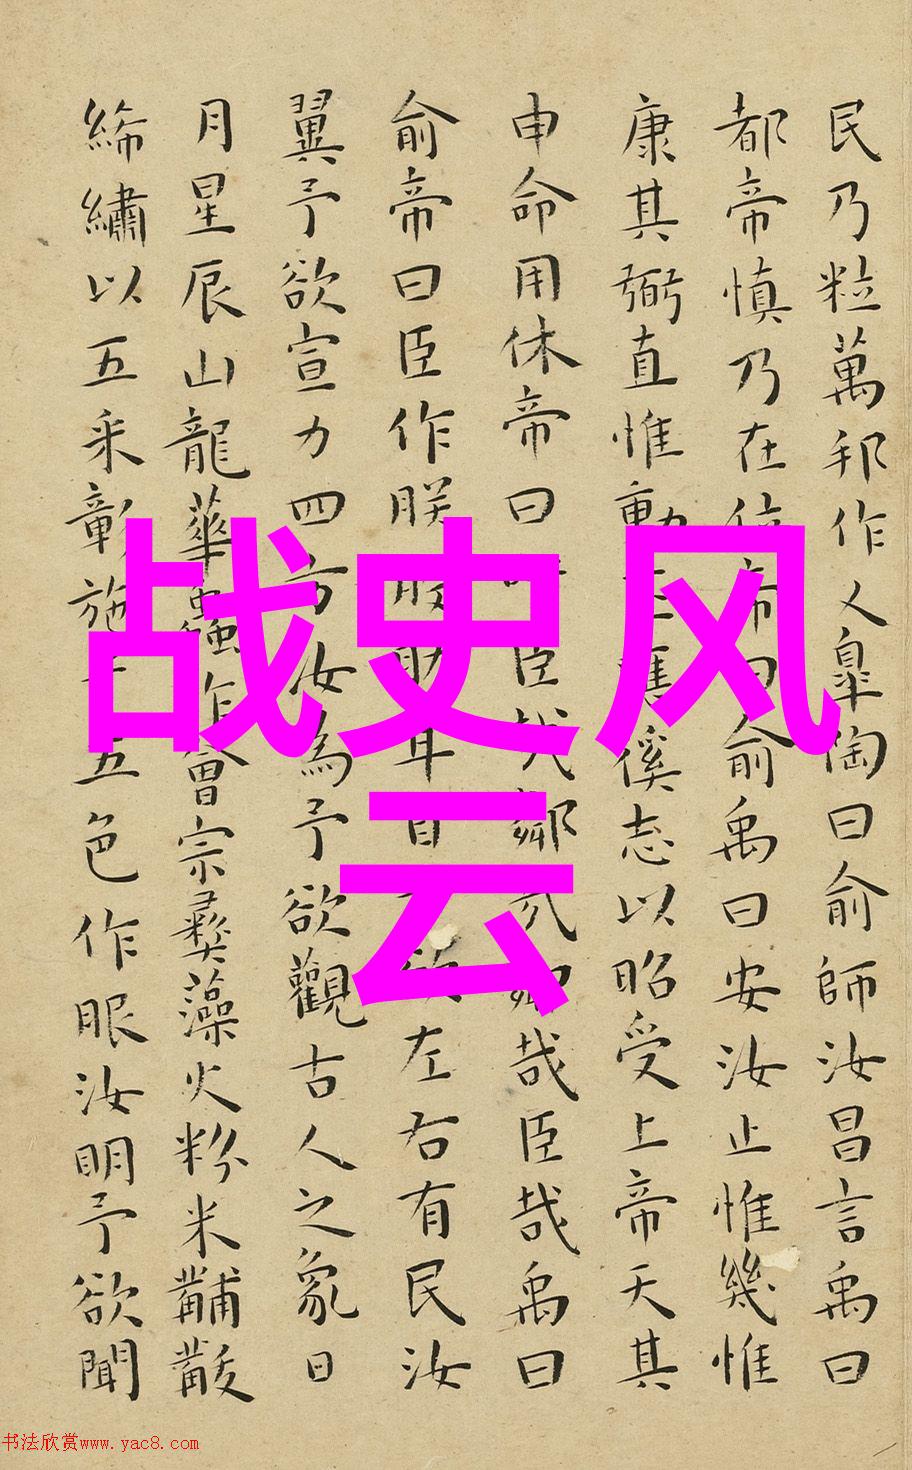 民乃粒萬邦作乂皐陶曰俞師汝昌言禹曰
都帝慎乃在位帝曰俞禹曰安汝止惟幾惟
康其弼直惟動丕應徯志以昭受上帝天其
申命用休帝曰臣哉鄰哉鄰哉臣哉禹曰
俞帝曰臣作朕股肱耳目左右有民汝
翼予欲宣力四方汝為予欲觀古人之象日
月星辰山龍華蟲作會宗彝藻火粉米黼黻
絺繡以五采彰施五色作服汝明予欲聞
战史风
云
书法欣赏www.yac8.com